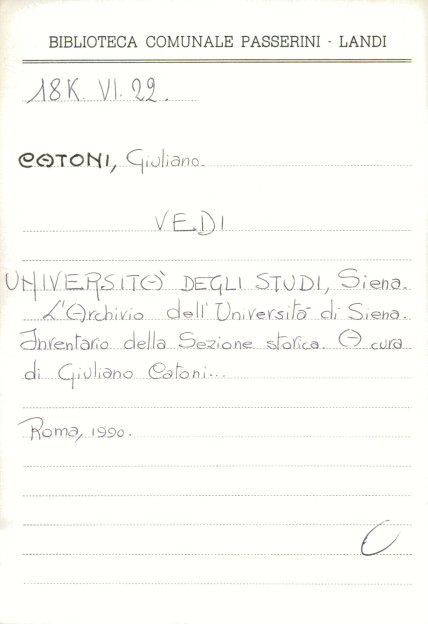 BIBLIOTECA COMUNALE PASSERINI - LANDI
18K. VI. 22.
CATONI, Giuliano.
VEDI
UNIVERSITÀ DEGLI STUDI, Siena.
L'Archivio dell'Università di Siena.
Inventario della Sezione storica. A cura
di Giuliano Catoni...
Roma, 1990.